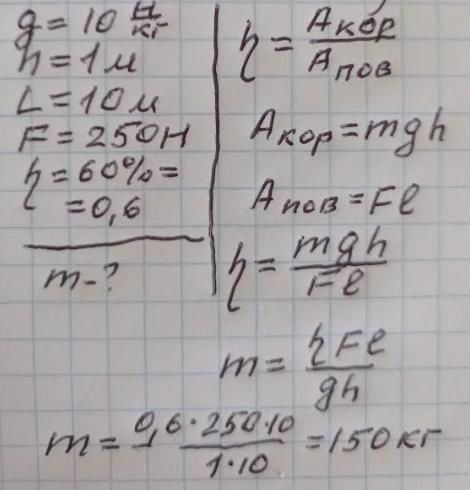 g = 10 Н/кг
h = 1 м
L = 10 м
F = 250 Н
η = 60% =
= 0,6
m - ?
η = Aкор/Aпов
Aкор = mgh
Aпов = Fℓ
η = mgh/Fℓ
m = ηFℓ/gh
m = 0,6·250·10/1·10 = 150 кг